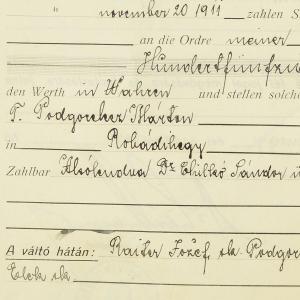 november 20 1911 zahlen S
an die Ordre meiner
Hundertfünfzi
den Werth in Wahren und stellen solche
T. Podgorelecz Márton
in Robádihegy
Zahlbar Alsólendva Dr Sándor
A váltó hátán: Raiter József sk. Podgor
Elek sk